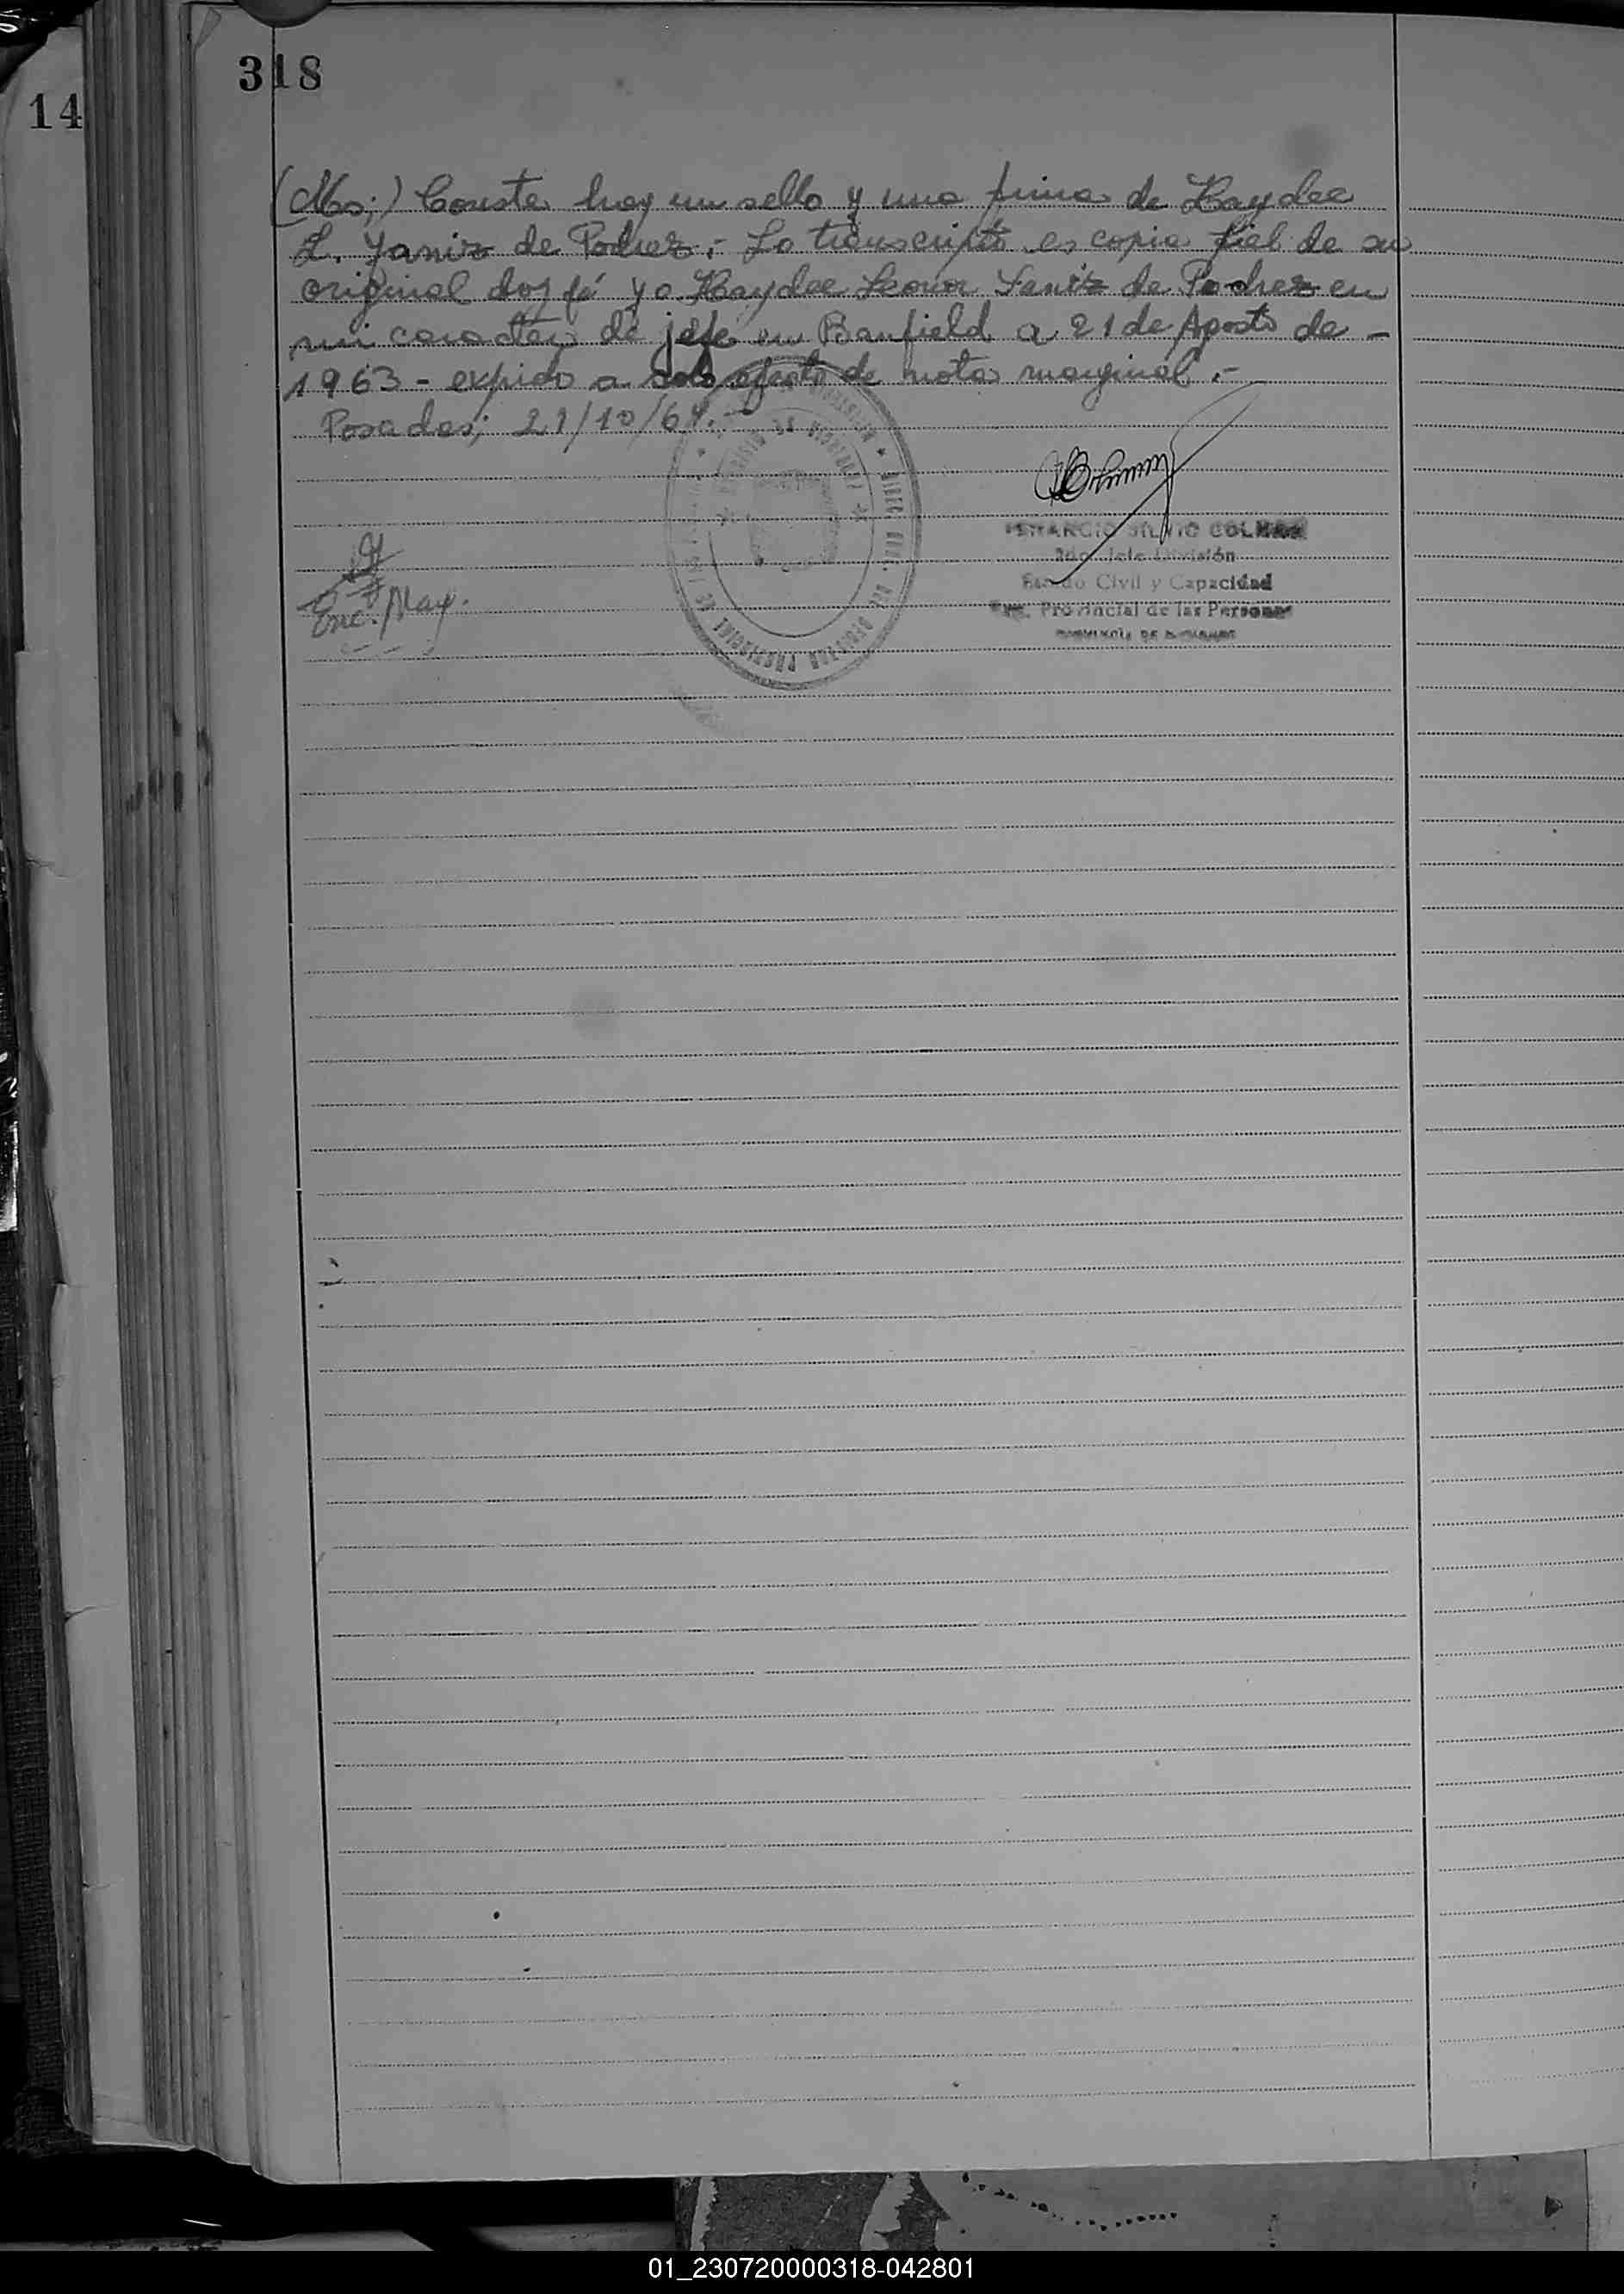 318
14
(Ms;) Consta hay un sello y una firma de Haydee
L. Yaniz de Podrez.- Lo transcripto es copia fiel de su
original doy fé yo Haydee Leonor Yaniz de Podrez en
mi caracter de jefe en Banfield a 21 de Agosto de -
1963 - expido a solo efecto de nota marginal.-
Posadas; 21/10/64.-
SILVIO COLMAN
2do. Jefe División
Estado Civil y Capacidad
Provincial de las Personas
Enc. May.
01_230720000318-042801